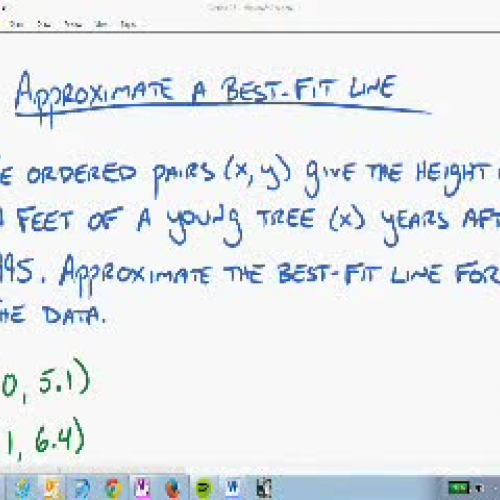 APPROXIMATE A BEST-FIT LINE
E ORDERED PAIRS (x, y) GIVE THE HEIGHT
FEET OF A YOUNG TREE (x) YEARS AFT
95. APPROXIMATE THE BEST-FIT LINE FOR
HE DATA.
0, 5.1)
1, 6.4)